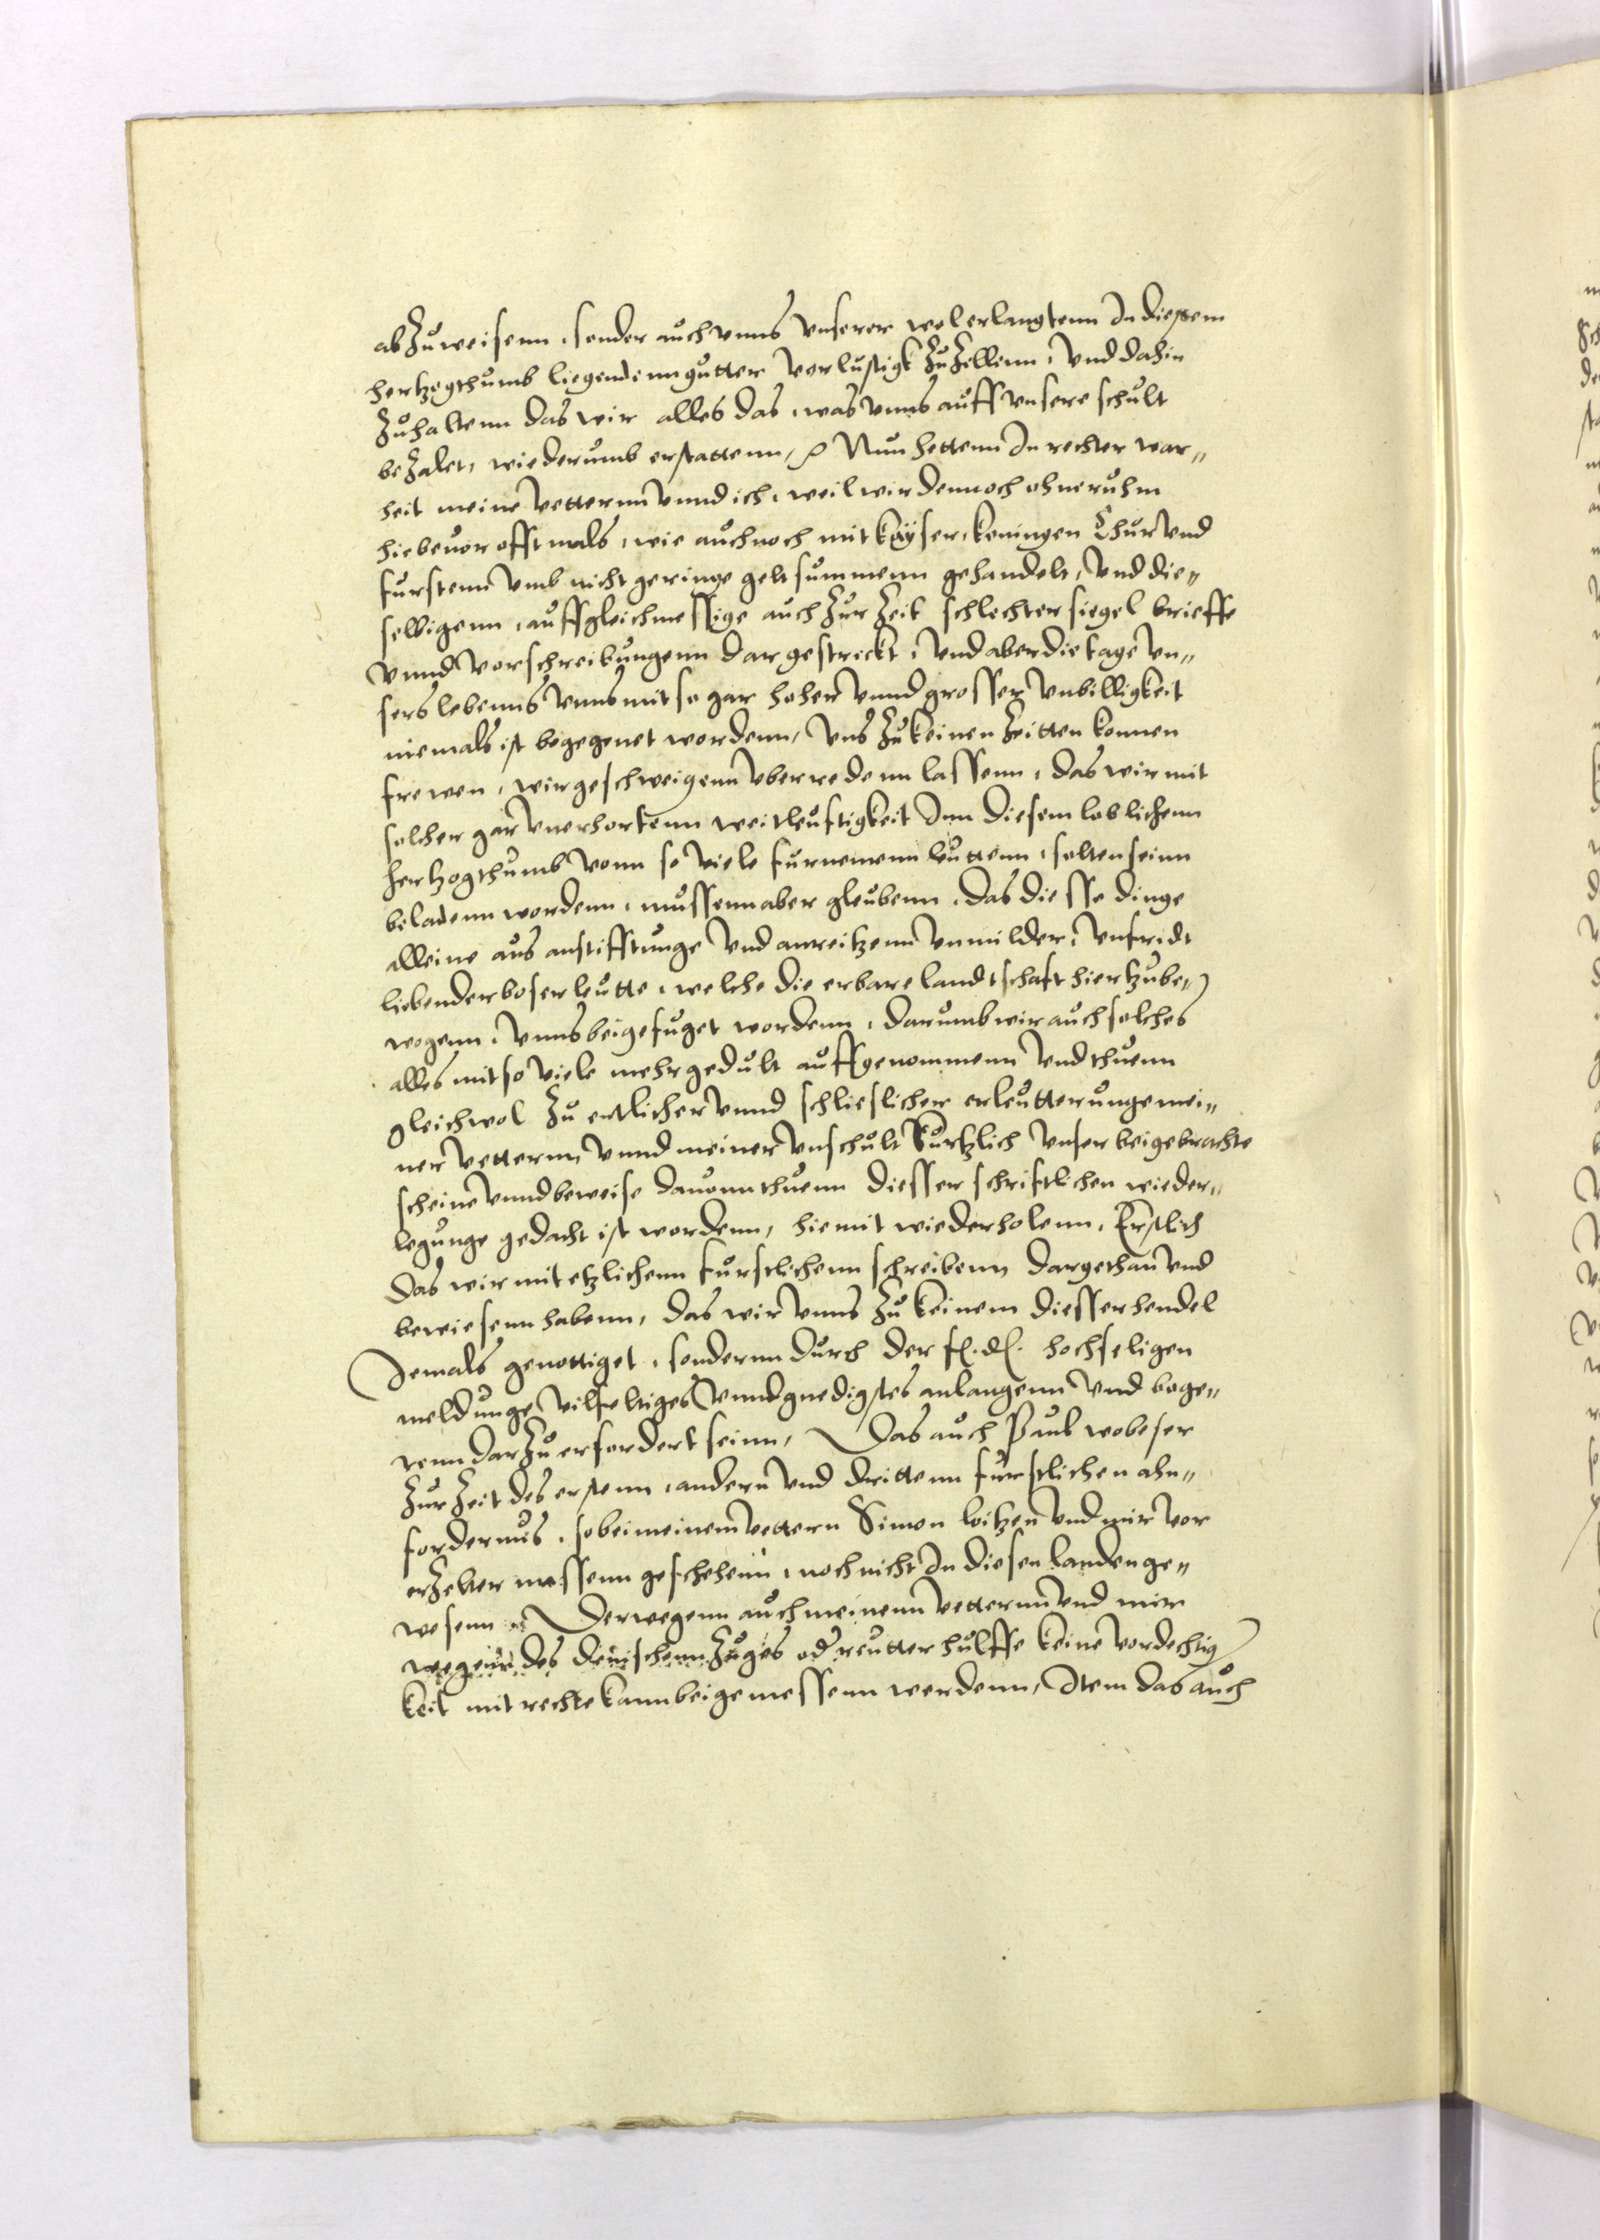 abzuweisenn, sonder auch vnns vnserer wolerlangtenn In diesem
hertzogthumb liegendenn gutter vorlustigk zu zellenn, vnd dahin
zuhaltenn das wir alles das, was vnns auff vnsere schult
bezalet, wiederumb erstattenn, Nun hettenn In rechter war„
heit meine vetternn vnnd ich, weil wir dennoch ohne ruhm
hiebeuor offtmals, wie auch noch mit kayser, koningen Chur vnd
furstenn vmb nicht geringe gelt summenn gehandelt, vnd die„
selbigenn, auff gleichmessige auch zur Zeit schlechter siegel brieffe
vnnd vorschreibungenn dar gestreckt, vnd aber die tage vn„
sers lebenns vnns mit so gar hoher vnnd grosser vnbilligkeit
niemals ist begegenet wordenn, vns zu keinen Zeitten konnen
frewen, wir geschweigenn vberredenn lassenn, das wir mit
solcher gar vnerhortenn weitleuftigkeit Inn diesem loblichenn
hertzogthumb vonn so viele furnemenn leuttenn, solten seinn
beladenn wordenn, mussenn aber gleubenn, das diesse dinge
alleine aus anstifftunge vnd anreitzenn vnmilder, vnfridt
liebender boser leutte, welche die erbare landtschaft hiertzu be„
wogenn, vnns beigefuget wordenn, darumb wir auch solches
alles mit so viele mehr gedult auffgenommenn vnd thuenn
gleichwol zu entlicher vnnd schlieslicher erleutterunge mei„
ner vetternn vnnd meiner vnschult kurtzlich vnser beigebrachte
scheine vnnd beweise dauonn thuenn diesser schriftlichen wieder„
legunge gedacht ist wordenn, hiemit wiederholenn, Erstlich
das wir mit etzlichenn furstlichenn schreibenn dargethan vnd
bewiesenn habenn, das wir vnns zu keinem diesser hendel
Jemals genottiget, sondernn durch der f. d. hochseligen
meldunge vilfeltiges vnnd gnedigstes anlangenn vnd bege„
renn darzu erfordert seinn, Das auch Paul wobeser
zur Zeit des erstenn, andern vnd drittenn furstlichen ahn„
fordernus, so bei meinem vettern Simon loitzen vnd mir vor
erzelter massenn geschehenn, noch nicht In diesen landen ge„
wesenn Derwegenn auch meinenn vetternn vnd mir
wegenn des denischenn zuges od reutter hulffe keine vordechtig
keit mit rechte kann beigemessenn werdenn, Item das auch